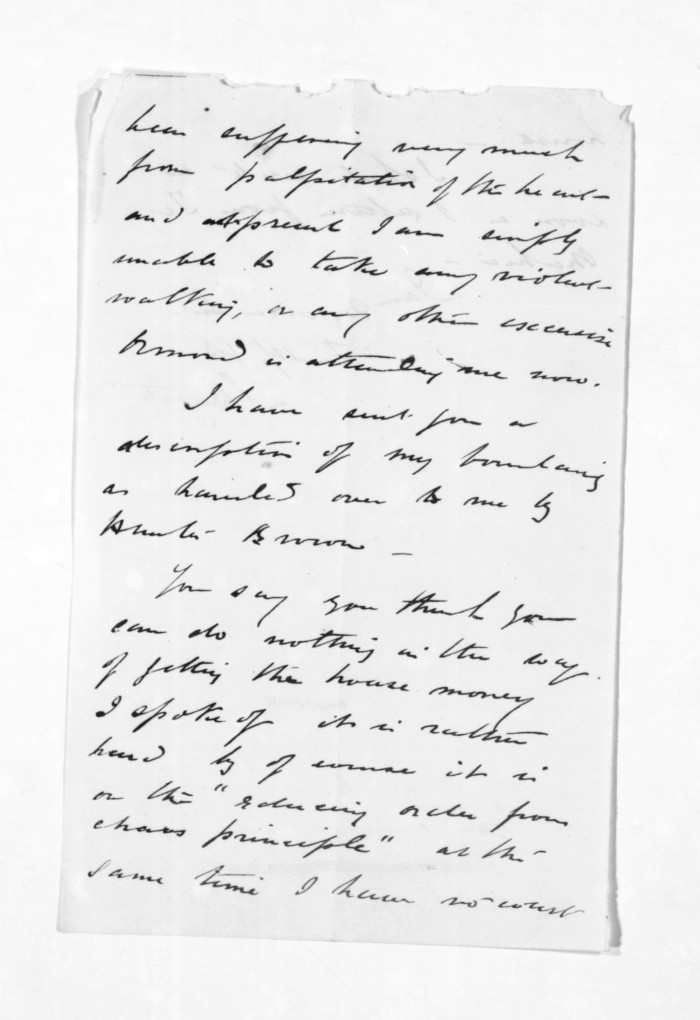 been suffering very much
from palpitation of the heart
and at present I am simply
unable to take any violent
walking, or any other exercise
Ormond is attending me now.
I have sent you a
description of my boundary
as handed over to me by
Hunter Brown —
You say you think you
can do nothing in the way
of getting the house money
I spoke of it is rather
hard by of course it is
on the "educing order from
chaos principle" at the
same time I have no